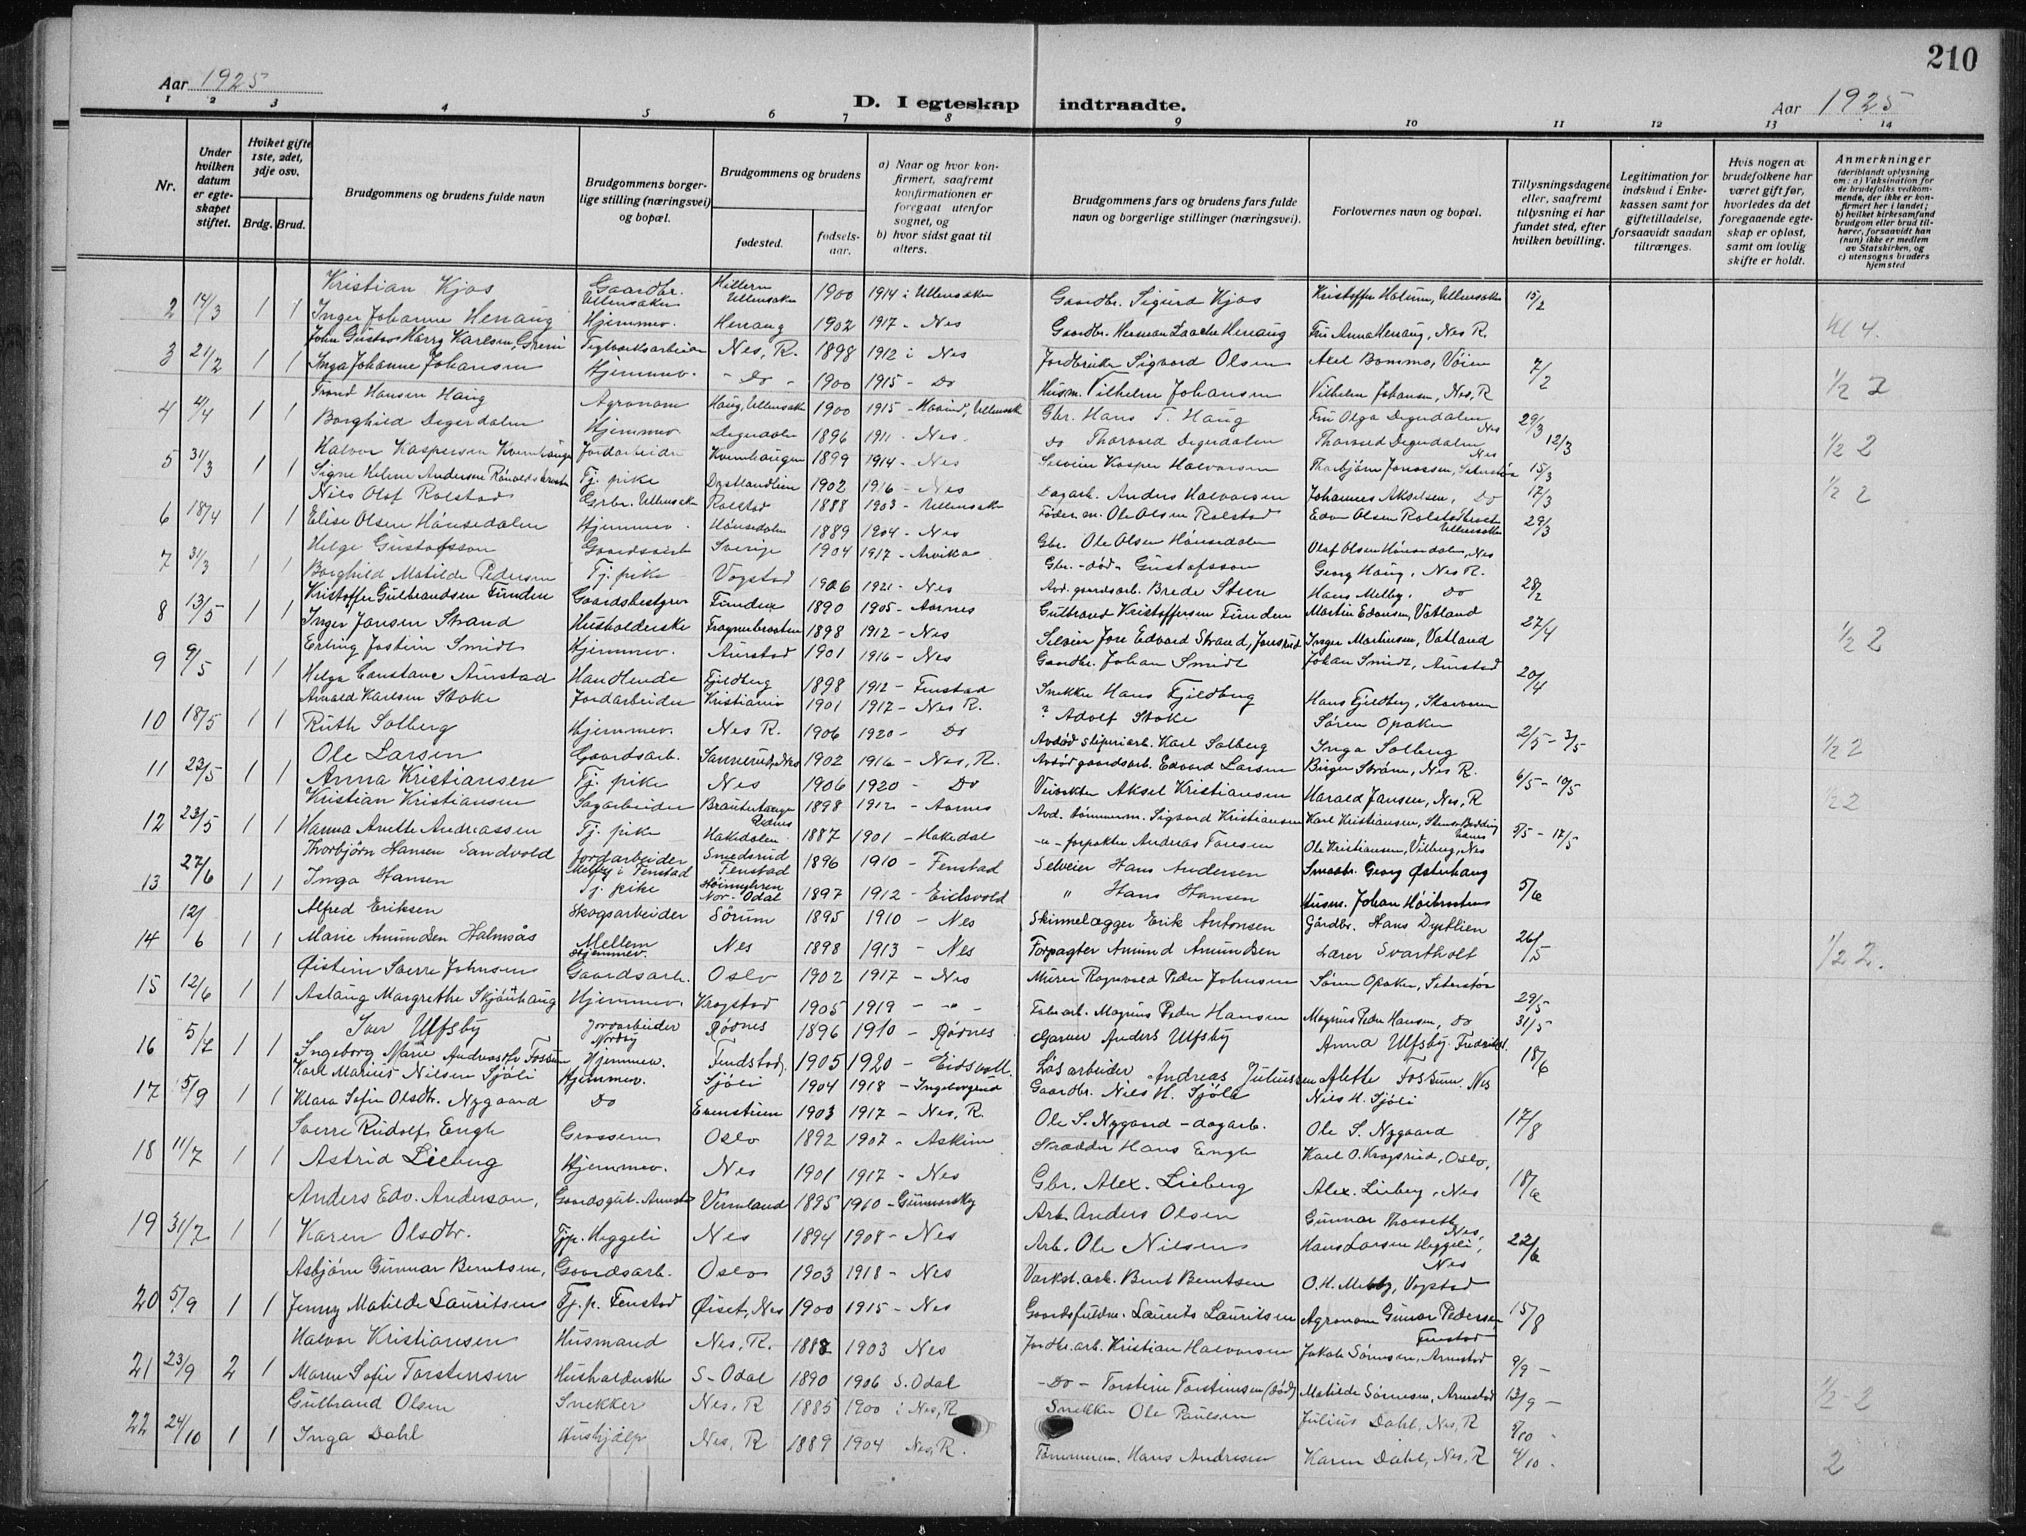 210
Aar 1925
D. I egteskap indtraadte.
Aar 1925
1 2 3 4 5 6 7 8 9 10 11 12 13 14
Nr.
Under hvilken datum er egteskapet stiftet.
Hvilket gifte 1ste, 2det, 3dje osv.
Brdg. Brud.
Brudgommens og brudens fulde navn
Brudgommens borgerlige stilling (næringsvei) og bopæl.
Brudgommens og brudens
fødested.
fødselsaar.
a) Naar og hvor konfirmert, saafremt konfirmationen er foregaat utenfor sognet, og
b) hvor sidst gaat til alters.
Brudgommens fars og brudens fars fulde navn og borgerlige stillinger (næringsvei).
Forlovernes navn og bopæl.
Tillysningsdagene eller, saafremt tillysning ei har fundet sted, efter hvilken bevilling.
Legitimation for indskud i Enkekassen samt for giftetilladelse, forsaavidt saadan tiltrænges.
Hvis nogen av brudefolkene har været gift før, hvorledes da det foregaaende egteskap er opløst, samt om lovlig skifte er holdt.
Anmerkninger (deriblandt oplysning om: a) Vaksination for de brudefolks vedkommende, der ikke er konfirmert her i landet; b) hvilket kirkesamfund brudgom eller brud tilhører, forsaavidt han (hun) ikke er medlem av Statskirken, og c) utensogns bruders hjemsted
2 14/3 1 1 Kristian Kjos Gaardbr. Ullensaker Hillern Ullensaker 1900 1914 i Ullensaker Gaardbr. Sigurd Kjos Kristoffer Holum, Ullensaker 15/2
Inger Johanne Henaug Hjemmev. Henaug 1902 1917 - Nes Gaardbr. Herman Laache Henaug Fru Anna Henaug, Nes R. Kl 4.
3 21/2 1 1 John Gustav Harry Karlsen, Greni Teglverksarbeider Nes, R. 1898 1912 i Nes Jordbruker Sigvard Olsen Axel Bommo, Vöien 7/2
Inga Johanne Johansen Hjemmev. - Do - 1900 1915 - Do Husm. Vilhelm Johansen Vilhelm Johansen, Nes, R 1/2 2
4 4/4 1 1 Trond Hansen Haug Agronom Haug, Ullensaker 1900 1915 - Ullensaker Gbr. Hans T. Haug Fru Olga Degerdalen Nes 29/3
Borghild Degerdalen Hjemmev. Degerdalen 1896 1911 - Nes. Do Thorvald Degerdalen Thorvald Degerdalen Nes 12/3 1/2 2
5 31/3 1 1 Halvor Kaspersen Kvernhaugen Jordarbeider Kvernhaugen 1899 1914 - Nes Selveier Kasper Halvorsen Thorbjörn Jonassen, Seterstøa 15/3
Signe Helene Andersen Tj. pike Dystlandlien 1902 1916 - Nes Dagarb. Anders Halvorsen Johannes Akselsen, Do 17/3 1/2 2
6 18/4 1 1 Nils Olaf Rolstad Grbr. Ullensaker Rolstad 1888 1903 - Ullensaker Føder.m. Ole Olsen Rolstad Edv. Olsen Rolstadbraaten Ullensaker 29/3
Elise Olsen Hönsedalen Hjemmev. Hönsedalen 1889 1904 - Nes Gbr. Ole Olsen Hönsedalen Olaf Olsen Hönsedalen, Nes
7 31/3 1 1 Helge Gustafsson Gaardsarb Sverige 1904 1917 - Arvika Gbr. - död - Gustafsson Georg Haug, Nes R.
Borghild Matilde Pedersen Tj. pike Vogstad 1906 1921 - Nes Avd. gaardsarb. Brede Steen Hans Melby, Do 28/2
8 13/5 1 1 Kristoffer Gulbrandsen Funder Gaardsbestyrer Funder 1890 1905 - Aarnes Gulbrand Kristoffersen Funder Martin Edvardsen, Vatland
Inger Jansen Strand Husholderske Fragnerbraaten 1898 1912 - Nes Selveier Jore Edvard Strand, Jonsrud Inger Martinsen, Vatland 27/4 1/2 2
9 9/5 1 1 Erling Jostein Smidt Hjemmev. Aunstad 1901 1916 - Nes Gaardbr. Johan Smidt Johan Smidt, Aunstad
Helga Constane Aunstad Handlende Fjeldberg 1898 1912 - Fenstad Snekker Hans Fjeldberg Hans Fjeldberg, 20/4
10 18/5 1 1 Arnold Karlsen Stoke Jordarbeider Kristiania 1901 1917 - Nes R. ? Adolf Stoke Sören Opaker
Ruth Solberg Hjemmev. Nes R. 1906 1920 - Do Avdød sliperiarb. Karl Solberg Inga Solberg 2/5 - 3/5 1/2 2
11 23/5 1 1 Ole Larsen Gaardsarb. Sannerud, Nes 1902 1916 - Nes, R. Avdød gaardsarb. Edvard Larsen Birger Ström, Nes R.
Anna Kristiansen Tj. pike Nes 1906 1920 - Do Veivokter Aksel Kristiansen Harald Jansen, Nes, R 6/5 - 10/5 1/2 2
12 23/5 1 1 Kristian Kristiansen Sagarbeider 1898 1912 - Aarnes Avd. tømmerm. Sigvard Kristiansen Karl Kristiansen,
Hanna Anette Andreassen Tj. pike Hakedalen 1887 1901 - Hakedal - " - forpakter Andreas Toresen Ole Kristiansen, Vilberg, Nes 8/5 - 17/5
13 27/6 1 1 Thorbjörn Hansen Sandvold Jordarbeider Melby i Fenstad Smedsrud Fenstad 1896 1910 - Fenstad Selveier Hans Andersen Smaabr. Georg Østerhaug
Inga Hansen Tj. pike Höimyhren Nor. Odal 1897 1912 - Eidsvold " Hans Hansen Husm. Johan Höibraaten 5/6
14 12/6 1 1 Alfred Eriksen Skogsarbeider Sörum 1895 1910 - Nes Skinnelægger Erik Antonsen Gårdbr. Hans Dystlien
Marie Amundsen Holmsås Mellem Hjemmev. Nes 1898 1913 - Nes Forpagter Amund Amundsen Lærer Svartholt 26/5 1/2 2.
15 12/6 1 1 Øistein Sverre Johnsen Gaardsarb. Oslo 1902 1917 - Nes Murer Ragnvald Peder Johnsen Sören Opaker, Seterstøa
Aslaug Margrethe Skjönhaug Hjemmev. Vragstad 1905 1919 - " Fabr.arb. Magnus Peder Hansen Magnus Peder Hansen, Do 29/5 31/5
16 5/7 1 1 Iver Ulfsby Jordarbeider Nordby Rödnes 1896 1910 - Rödnes Garver Anders Ulfsby Anna Ulfsby. Fredrikst.
Ingeborg Marie Andreasdtr Fossum Hjemmev. Fundstad 1905 1920 - Eidsvoll. Lösarbeider Andreas Juliussen Alette Fossum, Nes 18/6
17 5/9 1 1 Karl Marius Nilsen Sjöli Hjemmev. Sjöli 1904 1918 - Ingeborgrud Gaardbr. Nils H. Sjöli Nils H. Sjöli
Klara Sofie Olsdtr. Nygaard Do Evenstuen 1903 1917 - Nes, R. Ole S. Nygaard - dagarb. Ole S. Nygaard 17/8
18 11/7 1 1 Sverre Rudolf Engh Grosserer Oslo 1892 1907 - Askim Skrædder Hans Engh Karl O. Kragsrud, Oslo,
Astrid Lieberg Hjemmev. Nes 1901 1917 - Nes Gbr. Alex. Lieberg Alex. Lieberg, Nes 18/6
19 31/7 1 1 Anders Edv. Anderson, Gaardsgut. Aunstad Vermland 1895 1910 - Gunnarsky Arb. Anders Olsen Gunnar Thorseth Nes,
Karen Olsdtr. Tjp. Heggeli Nes 1894 1908 - Nes Arb. Ole Nilsen Hans Larsen Heggeli, Nes 22/6
20 5/9 1 1 Asbjörn Gunnar Berntsen, Gaardsarb. Oslo 1903 1918 - Nes Verkst.arb. Bernt Berntsen O.H. Melby, Vogstad
Jenny Matilde Lauritsens Tj. p. Fenstad Øiset, Nes 1900 1915 - Nes Gaardsfuldm. Laurits Lauritsen Agronom Gunar Pedersen Fenstad 15/8
21 23/9 2 1 Halvor Kristiansen Husmand Nes, R. 1882 1903 Nes Jordbr.arb. Kristian Halvorsen Jakob Sörensen, Aunstad 9/9 -
Maren Sofie Torstensen Husholderske S-Odal 1890 1906 S. Odal - Do - Torstein Torsteinsen (død) Matilde Sörensen, Aunstad 13/9 - 1/2 - 2
22 24/10 1 1 Gulbrand Olsen Snekker Nes, R 1885 1900 i Nes, R Snekker Ole Paulsen Julius Dahl, Nes, R 5/10 -
Inga Dahl Hushjælp Nes, R 1889 1904 Nes, R. Tømmerm. Hans Andresen Karen Dahl, Nes, R 4/10 - 2